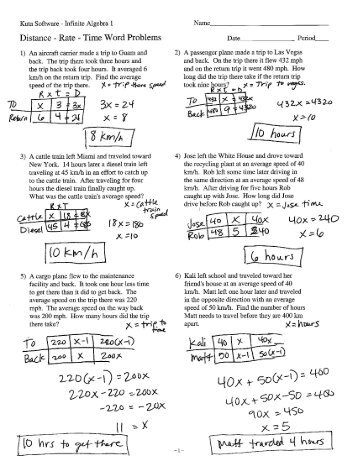 Kuta Software - Infinite Algebra 1
Name
Distance - Rate - Time Word Problems
Date
Period
1) An aircraft carrier made a trip to Guam and
back. The trip there took three hours and
the trip back took four hours. It averaged 6
km/h on the return trip. Find the average
speed of the trip there.
x = trip there speed
R x t = D
To x 3 = 3x
Return 6 4 = 24
3x = 24
x = 8
8 km/h
2) A passenger plane made a trip to Las Vegas
and back. On the trip there it flew 432 mph
and on the return trip it went 480 mph. How
long did the trip there take if the return trip
took nine hours?
x = Trip to vegas.
R x t = D
To 432 x = 432x
Back 480 9 = 4320
432x = 4320
x = 10
10 hours
3) A cattle train left Miami and traveled toward
New York. 14 hours later a diesel train left
traveling at 45 km/h in an effort to catch up
to the cattle train. After traveling for four
hours the diesel train finally caught up.
What was the cattle train's average speed?
R x T
x = cattle train speed
Cattle x 18 = 18x
Diesel 45 4 = 180
18x = 180
x = 10
10 km/h
4) Jose left the White House and drove toward
the recycling plant at an average speed of 40
km/h. Rob left some time later driving in
the same direction at an average speed of 48
km/h. After driving for five hours Rob
caught up with Jose. How long did Jose
drive before Rob caught up?
x = Jose time
Jose 40 x 40x
Rob 48 5 240
40x = 240
x = 6
6 hours
5) A cargo plane flew to the maintenance
facility and back. It took one hour less time
to get there than it did to get back. The
average speed on the trip there was 220
mph. The average speed on the way back
was 200 mph. How many hours did the trip
there take?
x = trip to time
To 220 x-1 220(x-1)
Back 200 x 200x
220(x-1) = 200x
220x - 220 = 200x
-220 = -20x
11 = x
10 hrs to get there
6) Kali left school and traveled toward her
friend's house at an average speed of 40
km/h. Matt left one hour later and traveled
in the opposite direction with an average
speed of 50 km/h. Find the number of hours
Matt needs to travel before they are 400 km
apart.
x = hours
Kali 40 x 40x
Matt 50 x-1 50(x-1)
40x + 50(x-1) = 400
40x + 50x - 50 = 400
90x = 450
x = 5
Matt traveled 4 hours
-1-